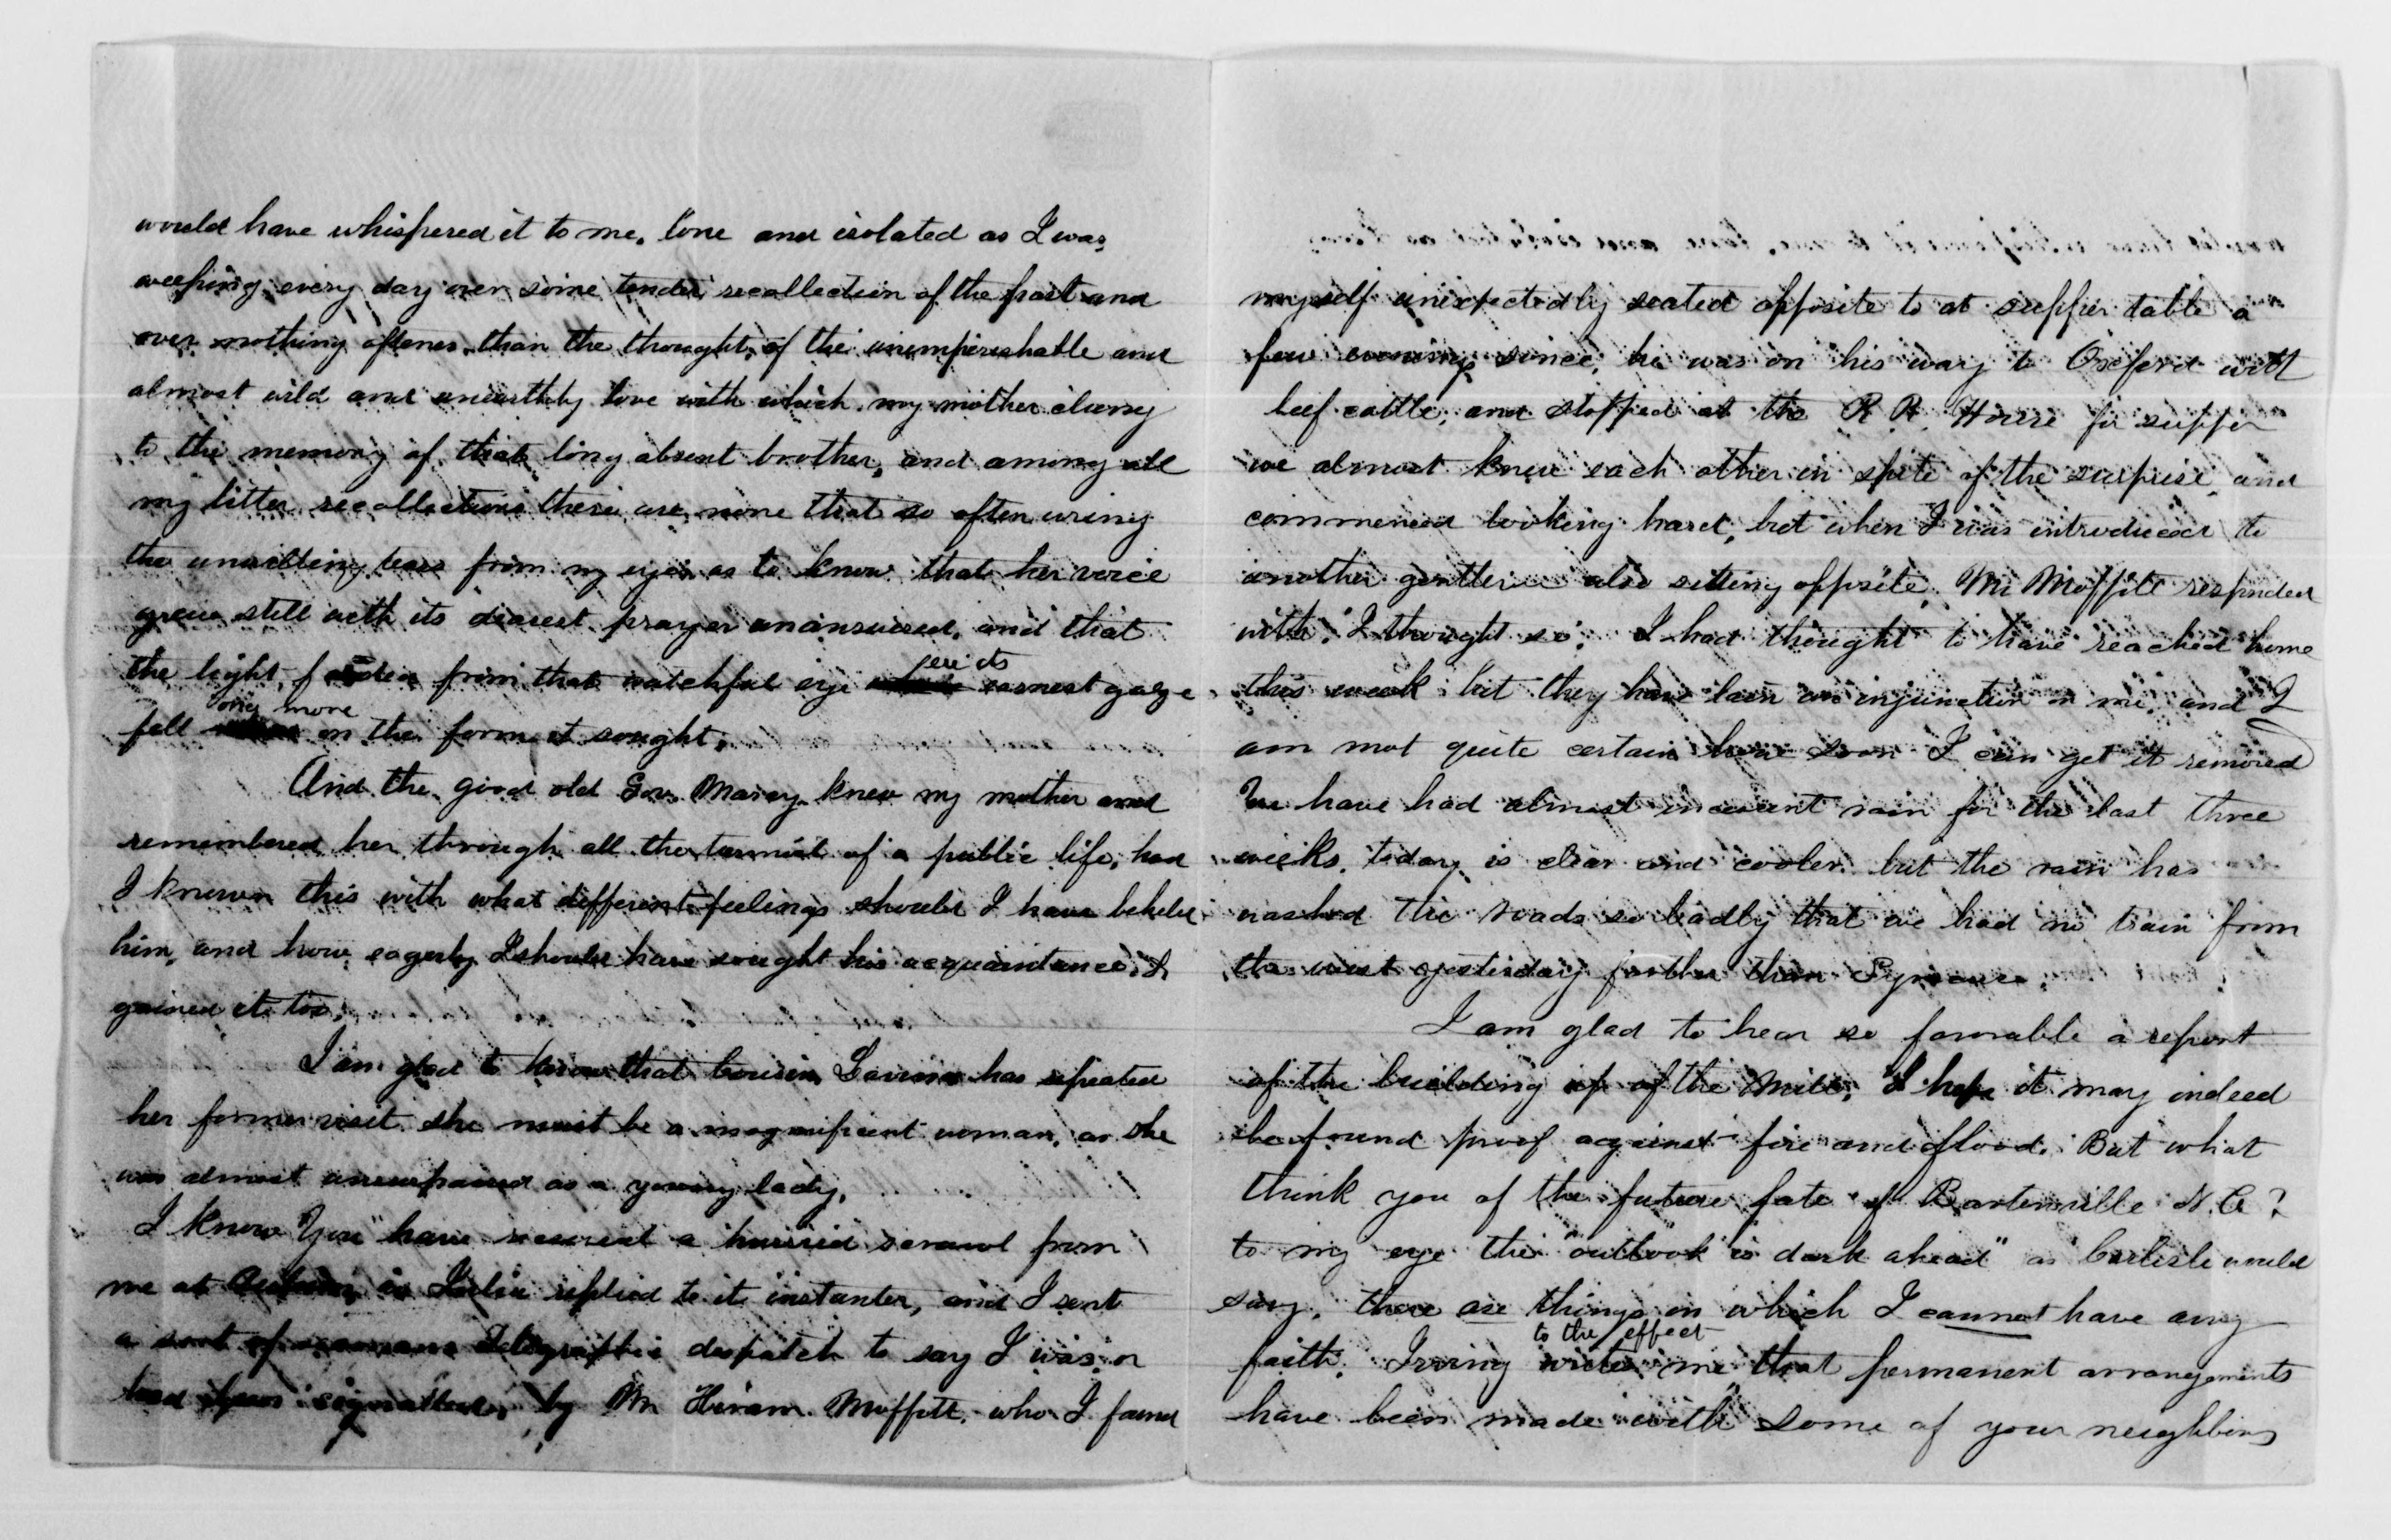 would have whispered it to me, lone and isolated as I was,
weeping every day over some tender recollection of the past and
over nothing oftener than the thought of the unimperishable and
almost wild and unearthly love with which my mother clung
to the memory of that long absent brother, and among all
my bitter recollections there are none that so often wring
the unwilling tears from my eyes as to know that her voice
grew still with its dearest prayer unanswered, and that
the light faded from that watchful eye ere its earnest gaze
fell once more on the form it sought.
And the good old Gov. Marcy knew my mother and
remembered her through all the turmoil of a public life, had
I known this with what different feelings should I have beheld
him, and how eagerly I should have sought his acquaintance, &
gained it too.
I am glad to know that Cousin has repeated
her former visit she must be a magnificent woman, as she
was almost unsurpassed as a young lady.
I know you have received a hurried scrawl from
me at as replied to it instanter, and I sent
a sort of telegraphic despatch to say I was or
had been by Mr Hiram Moffitt, who I found
myself unexpectedly seated opposite to at supper table a
few evenings since, he was on his way to Oxford with
beef cattle, and stopped at the R R House for supper
we almost knew each other in spite of the surprise and
commenced looking hard, but when I was introduced to
another gentleman also sitting opposite, Mr Moffitt responded
with "I thought so". I had thought to have reached home
this week but they have lain an injunction on me, and I
am not quite certain how soon I can get it removed
We have had almost incessant rain for the last three
weeks. today is clear and cooler but the rain has
washed the roads so badly that we had no train from
the west yesterday farther than Syracuse.
I am glad to hear so favorable a report
of the building up of the Mill, I hope it may indeed
be found proof against fire and flood. But what
think you of the future fate of Bartonville N.C?
to my eye the "outlook is dark ahead" as Carlisle would
say, there are things in which I cannot have any
faith. Irving writes me to the effect that permanent arrangements
have been made with some of your neighbors